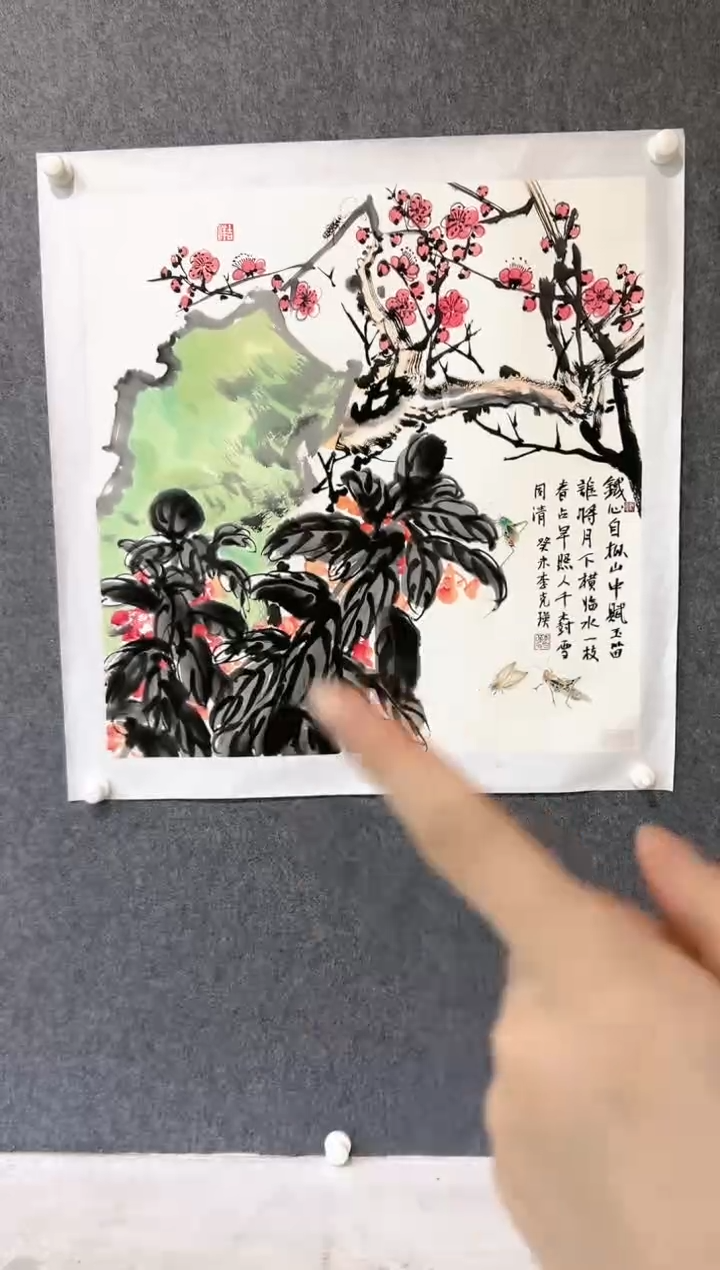 鐵心自擬山中賦玉笛
誰將月下橫臨水一枝
春占早照人千樹雪
同清 癸未李克